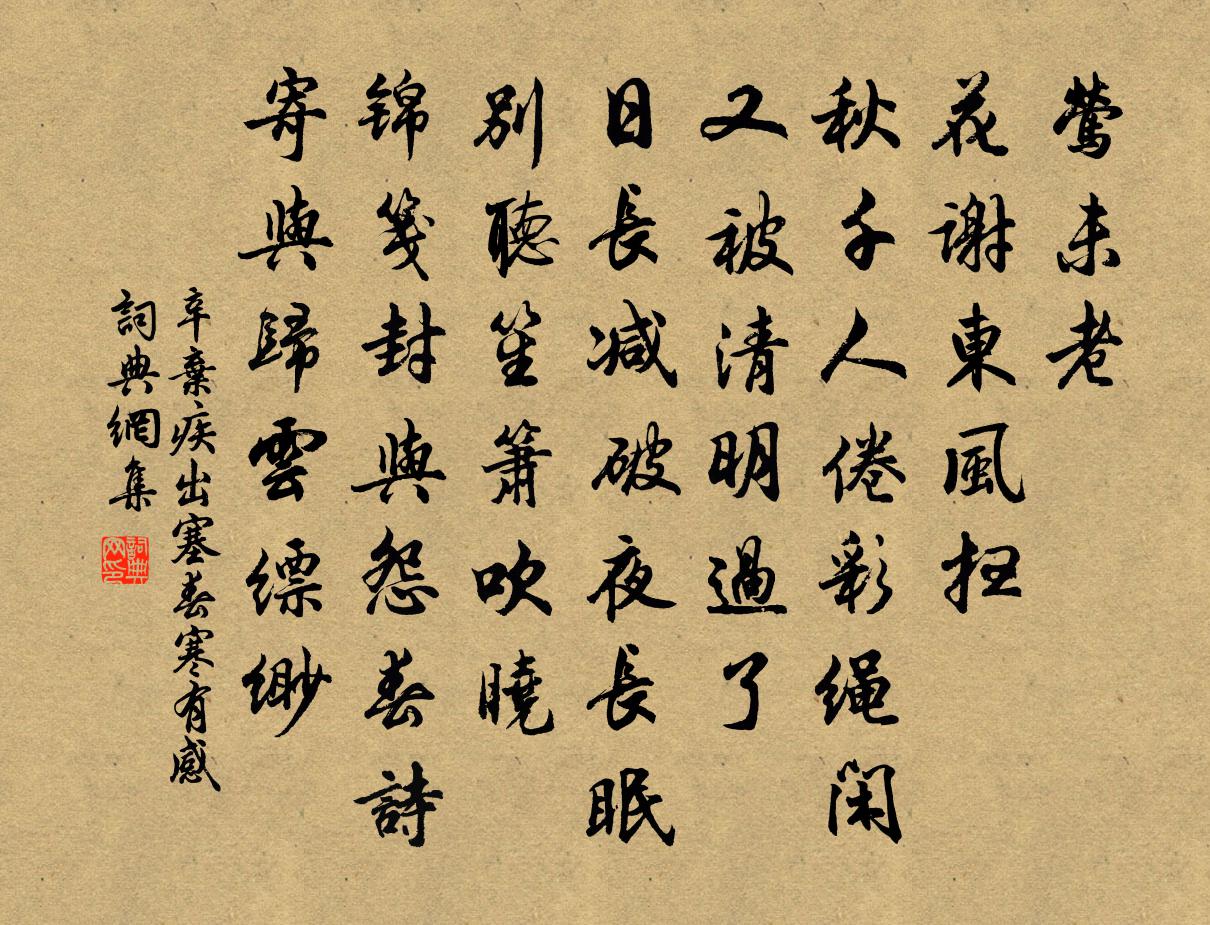 鶯未老
花謝東風扫
秋千人倦彩绳闲
又被清明過了
日長减破夜長眠
別聽笙簫吹曉
锦箋封與怨春詩
寄與歸雲缥缈
辛棄疾出塞春寒有感
詞典網集
詞典网印